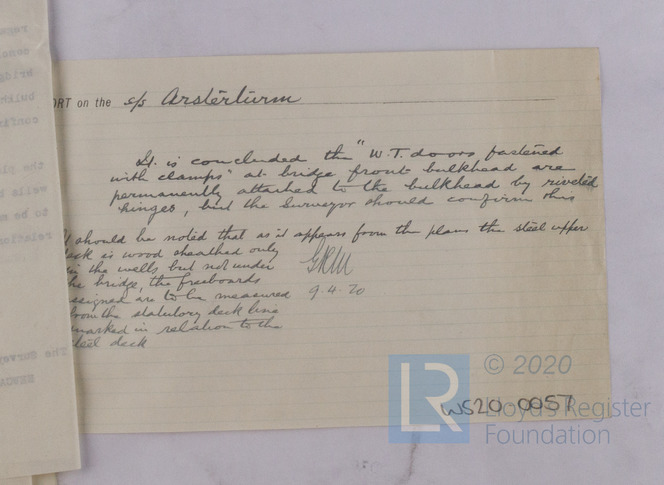 ORT on the s/s Arsterturm
It is concluded the "W.T. doors fastened
with clamps" at bridge front bulkhead are
permanently attached to the bulkhead by riveted
hinges, but the Surveyor should confirm this
should be noted that as it appears from the plans the steel upper
deck is wood sheathed only
in the wells but not under
the bridge, the freeboards
assigned are to be measured
from the statutory deck line
marked in relation to the
steel deck
9.4.20
WS20 0057
LR
© 2020
Lloyd's Register
Foundation